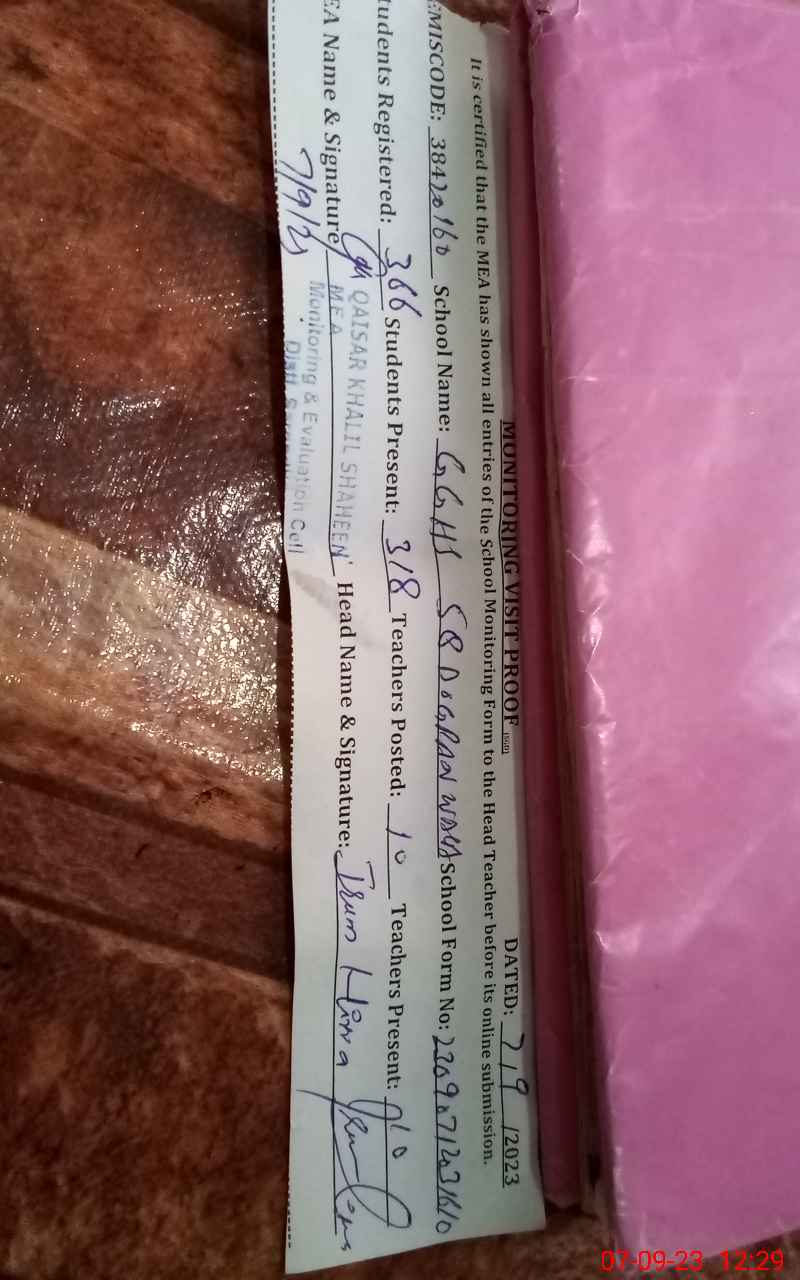 MONITORING VISIT PROOF (SGD) DATED: 7/9/2023
It is certified that the MEA has shown all entries of the School Monitoring Form to the Head Teacher before its online submission.
EMISCODE: 38420160 School Name: GGHS 58 DOGRAN WALA School Form No:
tudents Registered: 366 Students Present: 318 Teachers Posted: 10 Teachers Present: 10
EA Name & Signature QAISAR KHALIL SHAHEEN Head Name & Signature: Irum Hina
MEA
Monitoring & Evaluation Cell
7/9/23
07-09-23 12:29